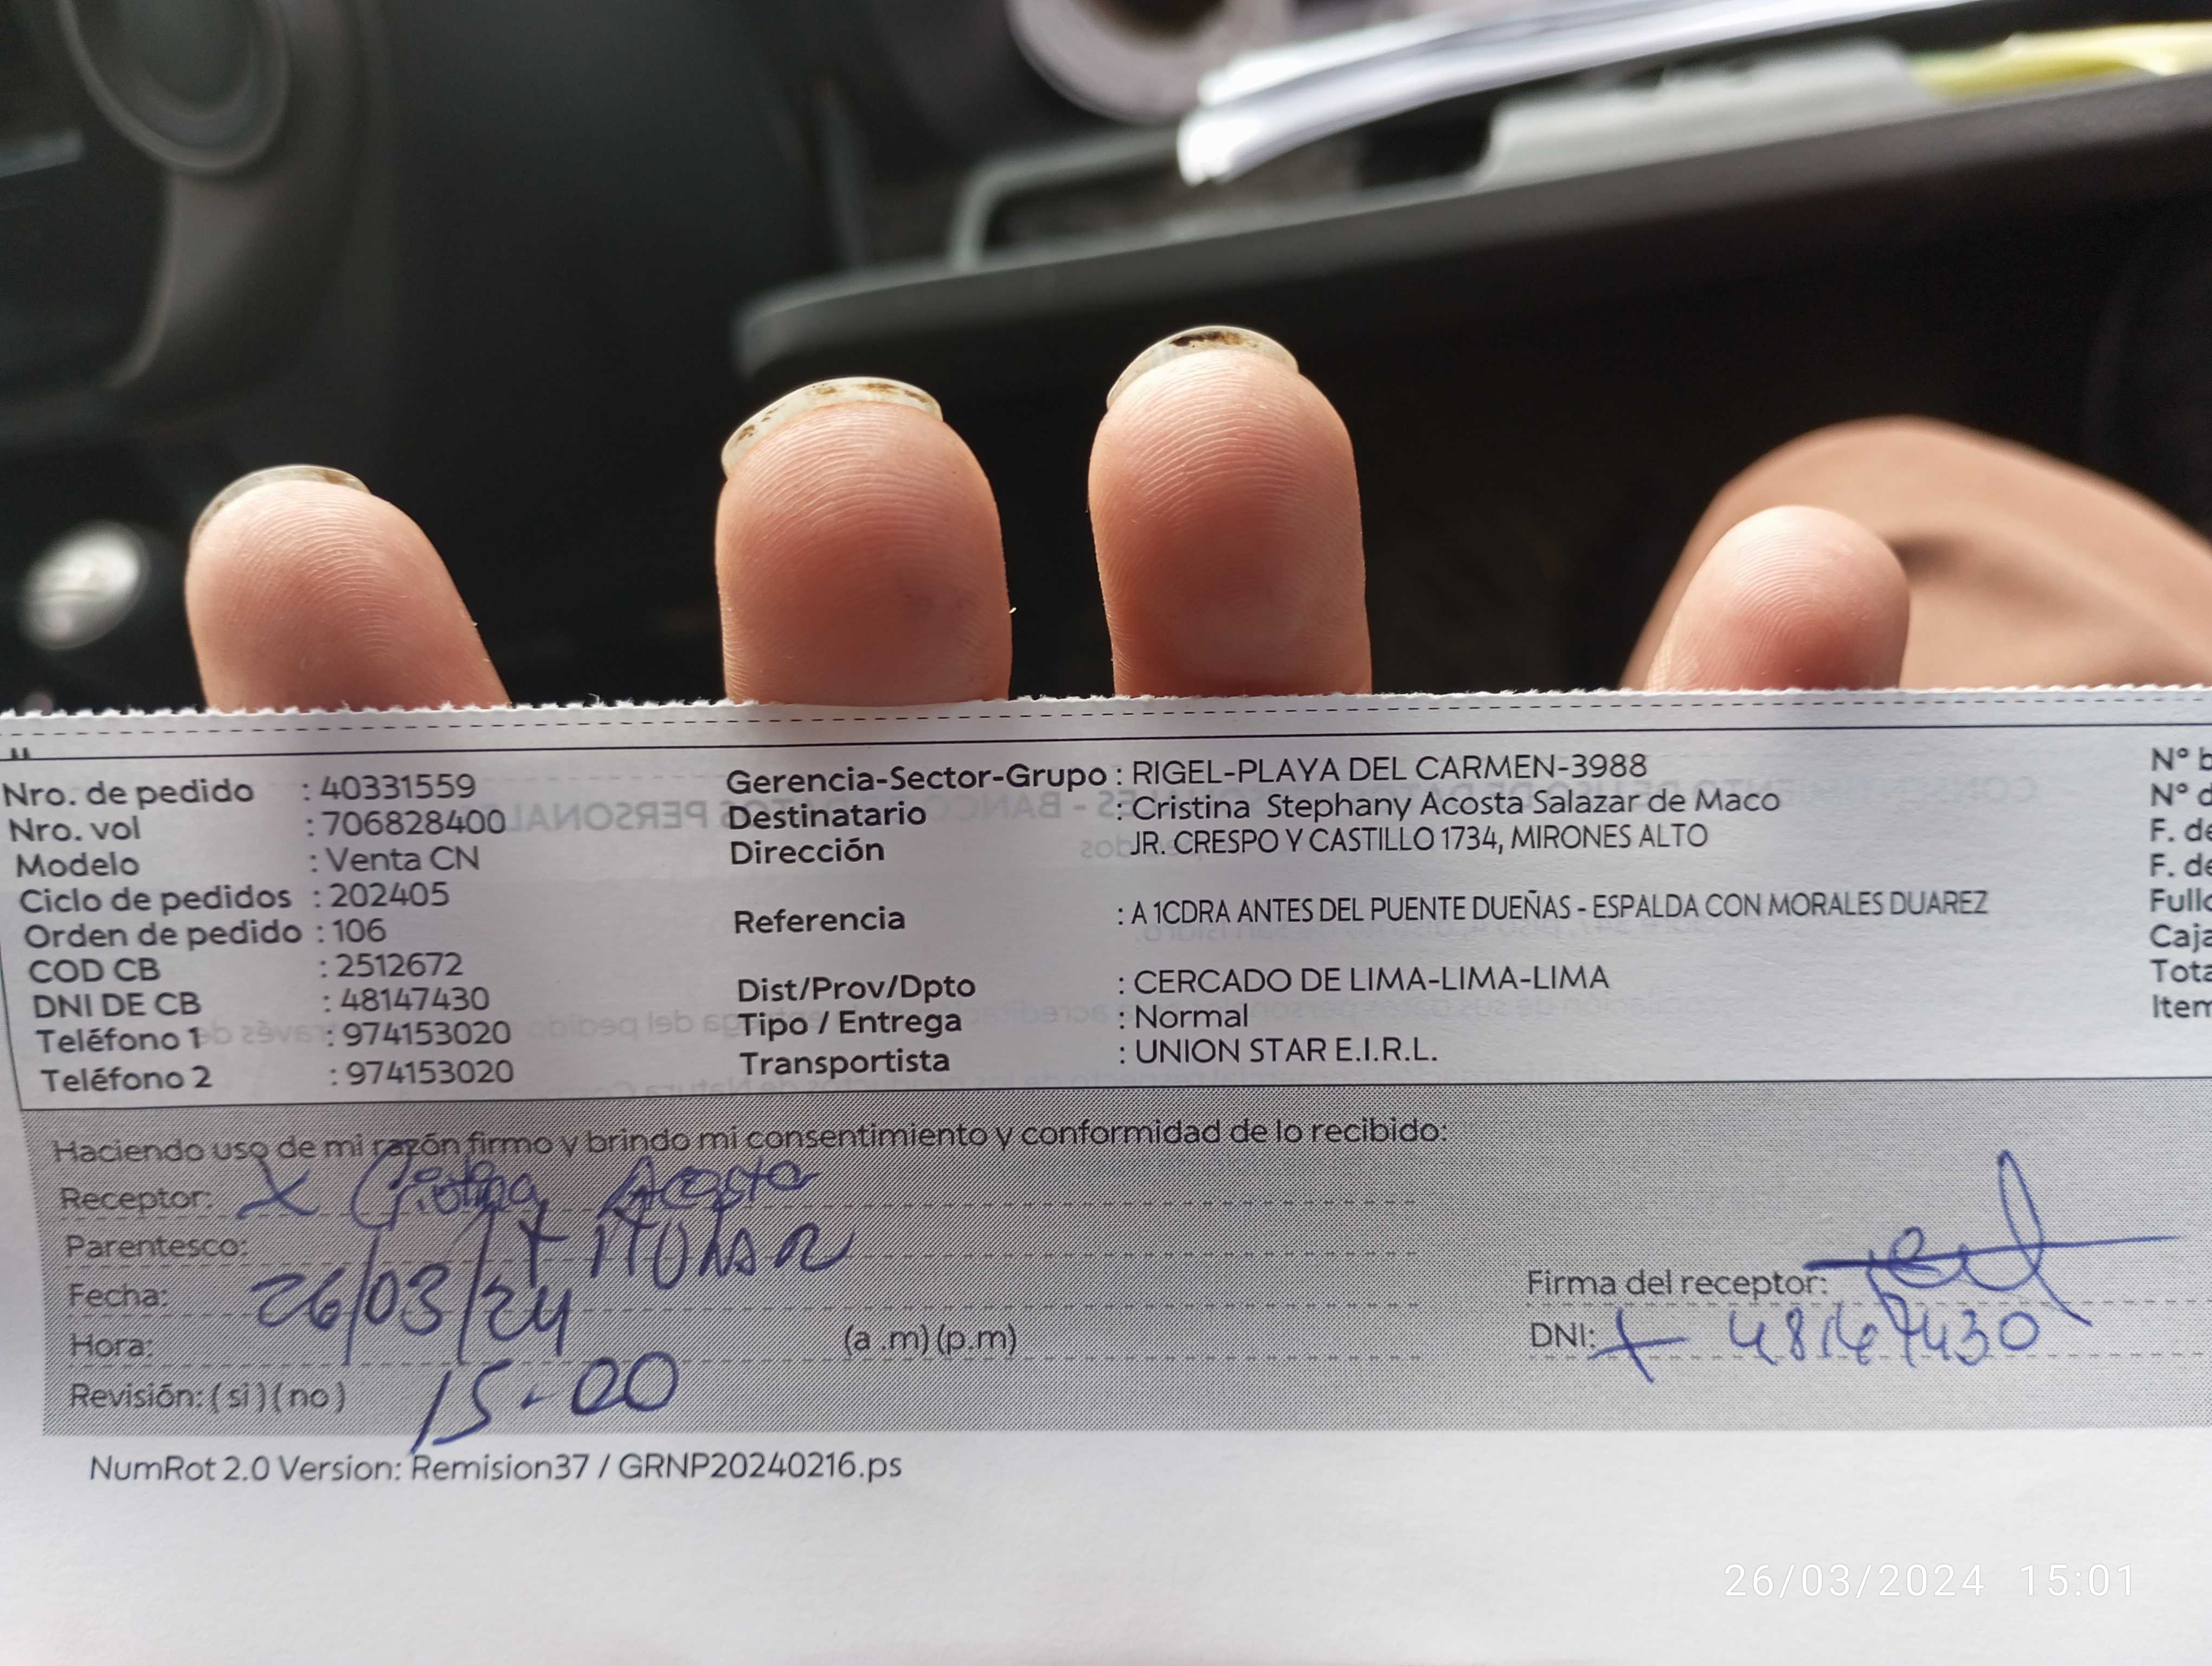 Nro. de pedido : 40331559
Nro. vol : 706828400
Modelo : Venta CN
Ciclo de pedidos : 202405
Orden de pedido : 106
COD CB : 2512672
DNI DE CB : 48147430
Teléfono 1 : 974153020
Teléfono 2 : 974153020
Gerencia-Sector-Grupo : RIGEL-PLAYA DEL CARMEN-3988
Destinatario : Cristina Stephany Acosta Salazar de Maco
Dirección JR. CRESPO Y CASTILLO 1734, MIRONES ALTO
Referencia : A 1CDRA ANTES DEL PUENTE DUEÑAS - ESPALDA CON MORALES DUAREZ
Dist/Prov/Dpto : CERCADO DE LIMA-LIMA-LIMA
Tipo / Entrega : Normal
Transportista : UNION STAR E.I.R.L.
Nº
Nº
F. de
F. de
Haciendo uso de mi razón firmo y brindo mi consentimiento y conformidad de lo recibido:
Receptor: X Cristina Acosta
Parentesco: TITULAR
Fecha: 26/03/24
Hora: 15-00 (a .m) (p.m)
Revisión: ( si ) ( no )
Firma del receptor:
DNI: 48147430
NumRot 2.0 Version: Remision37 / GRNP20240216.ps
26/03/2024 15:01